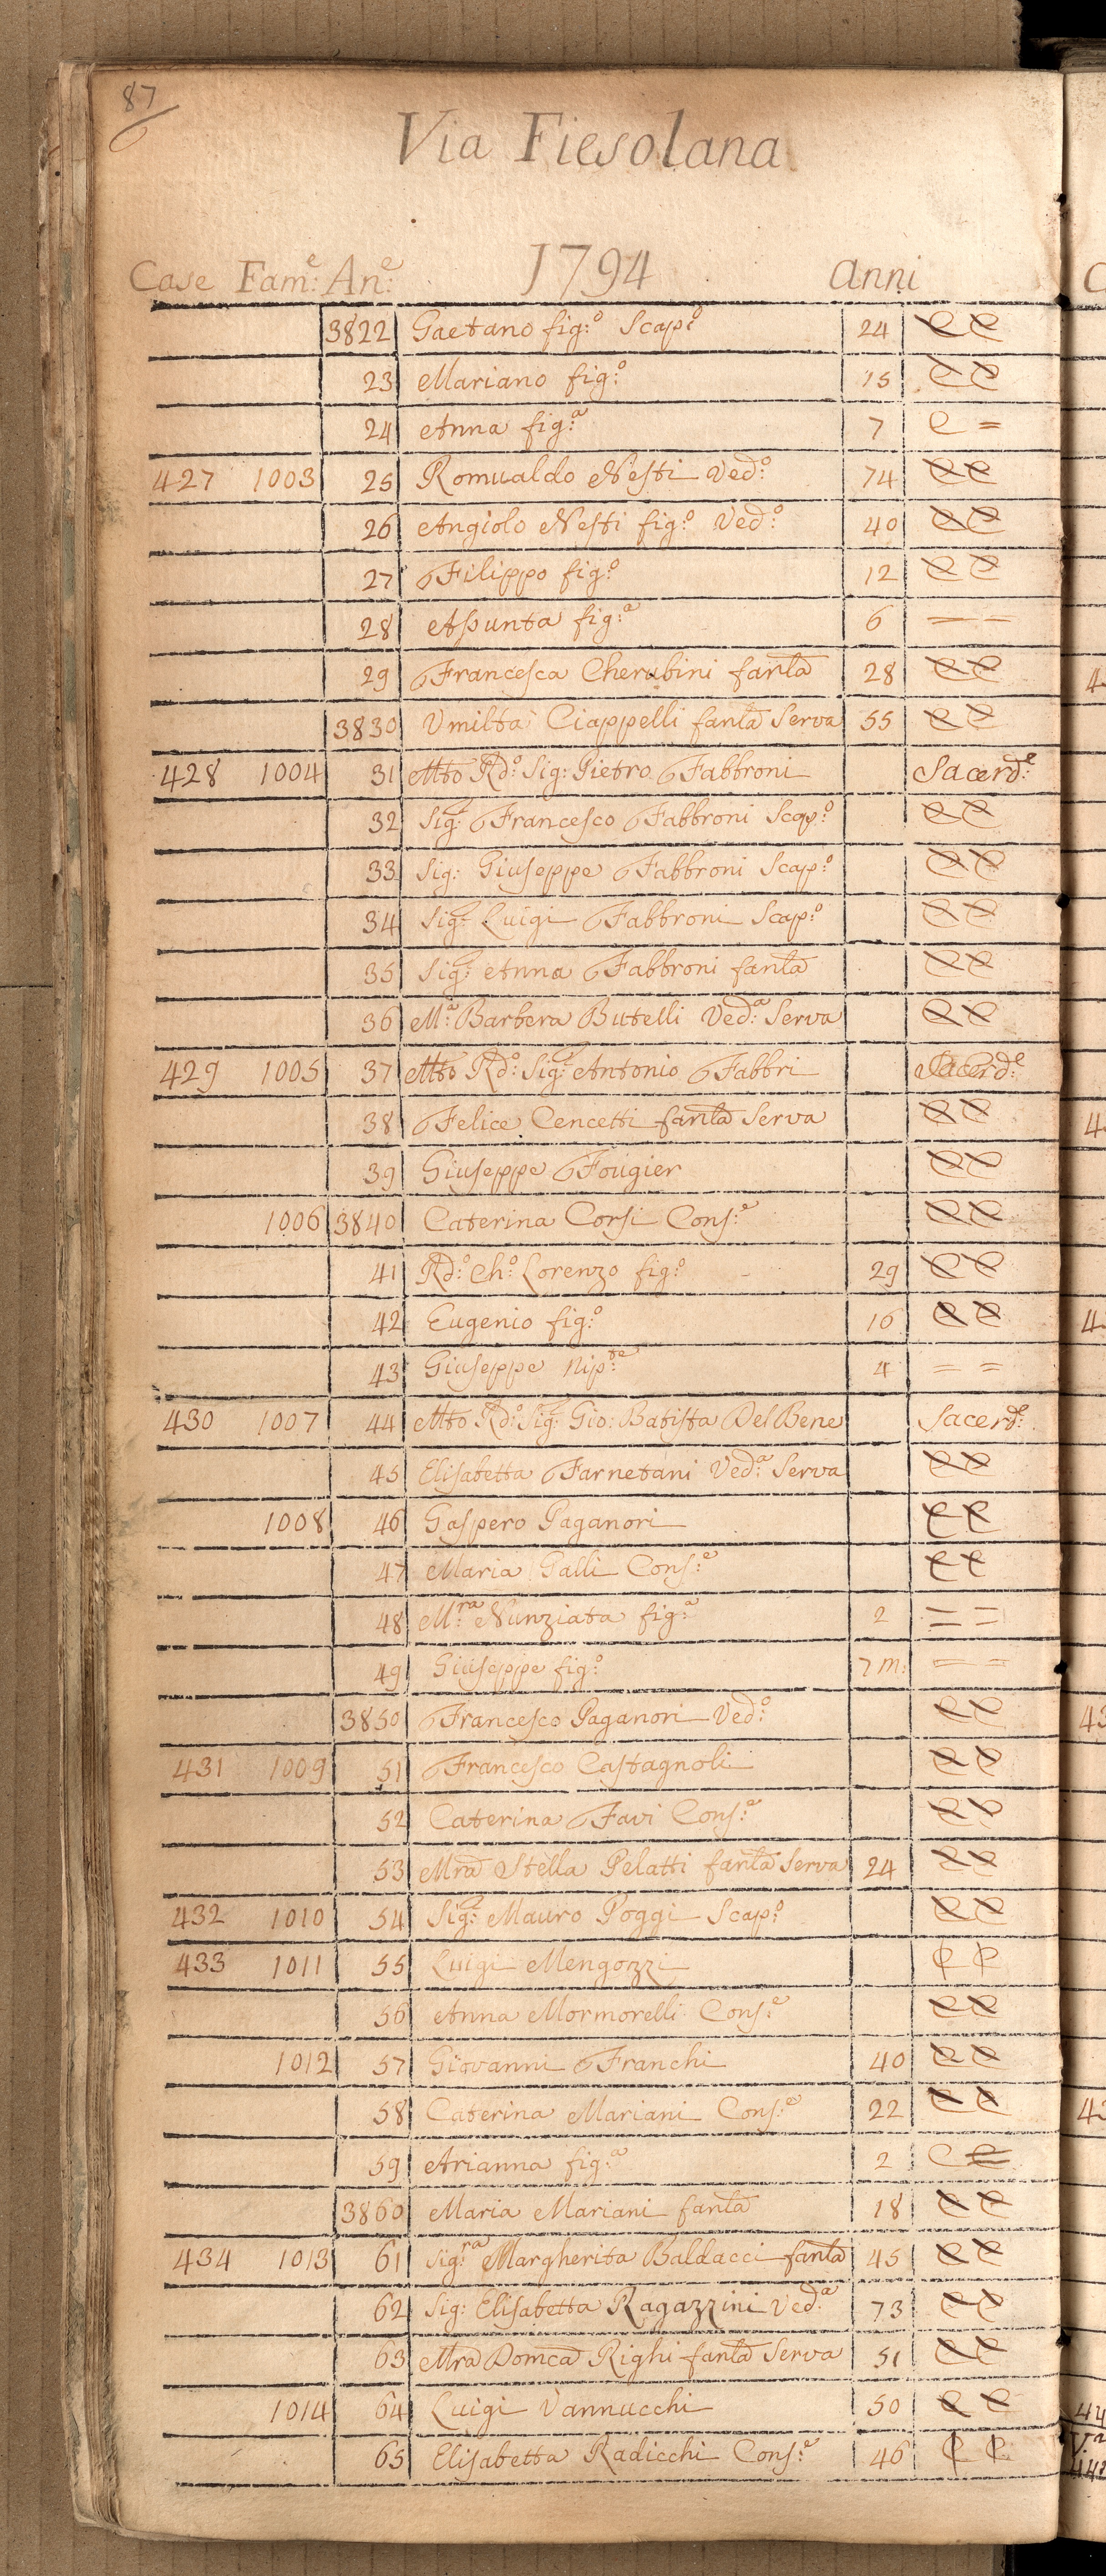 87
Via Fiesolana
Case Fam:e An:e 1794 anni
3822 Gaetano fig:o Scap:o 24 C C
23 Mariano fig:o 15 C C
24 Anna fig:a 7 C =
427 1003 25 Romualdo Nesti Ved:o 74 C C
26 Angiolo Nesti fig:o Ved:o 40 C C
27 Filippo fig:o 12 C C
28 Assunta fig:a 6 = =
29 Francesca Cherubini fanla 28 C C
3830 Umiltà Ciappelli fanla Serva 55 C C
428 1004 31 Mto Rd:o Sig: Pietro Fabbroni Sacerd:e
32 Sig: Francesco Fabbroni Scap:o C C
33 Sig: Giuseppe Fabbroni Scap:o C C
34 Sig: Luigi Fabbroni Scap:o C C
35 Sig: Anna Fabbroni fanla C C
36 M:a Barbera Butelli Ved:a Serva C C
429 1005 37 Mto Rd:o Sig: Antonio Fabbri Sacerd:e
38 Felice Cencetti fanla Serva C C
39 Giuseppe Fougier C C
1006 3840 Caterina Corsi Cons:e C C
41 Rd:o Ch:o Lorenzo fig:o 29 C C
42 Eugenio fig:o 16 C C
43 Giuseppe Nip:te 4 = =
430 1007 44 Mto Rd:o Sig: Gio: Batista Del Bene Sacerd:e
45 Elisabetta Farnetani Ved:a Serva C C
1008 46 Gaspero Paganori C C
47 Maria Galli Cons:e C C
48 M:ra Nunziata fig:a 2 = =
49 Giuseppe fig:o 7 m: = =
3850 Francesco Paganori Ved:o C C
431 1009 51 Francesco Castagnoli C C
52 Caterina Favi Cons:e C C
53 Mra Stella Pelatti fanla Serva 24 C C
432 1010 54 Sig: Mauro Poggi Scap:o C C
433 1011 55 Luigi Mengozzi C C
56 Anna Mormorelli Cons:e C C
1012 57 Giovanni Franchi 40 C C
58 Caterina Mariani Cons:e 22 C C
59 Arianna fig:a 2 C C
3860 Maria Mariani fanla 18 C C
434 1013 61 Sig:ra Margherita Baldacci fanla 45 C C
62 Sig: Elisabetta Ragazzini Ved:a 73 C C
63 Mra Domca Righi fanla Serva 51 C C
1014 64 Luigi Vannucchi 50 C C
65 Elisabetta Radicchi Cons:e 46 C C